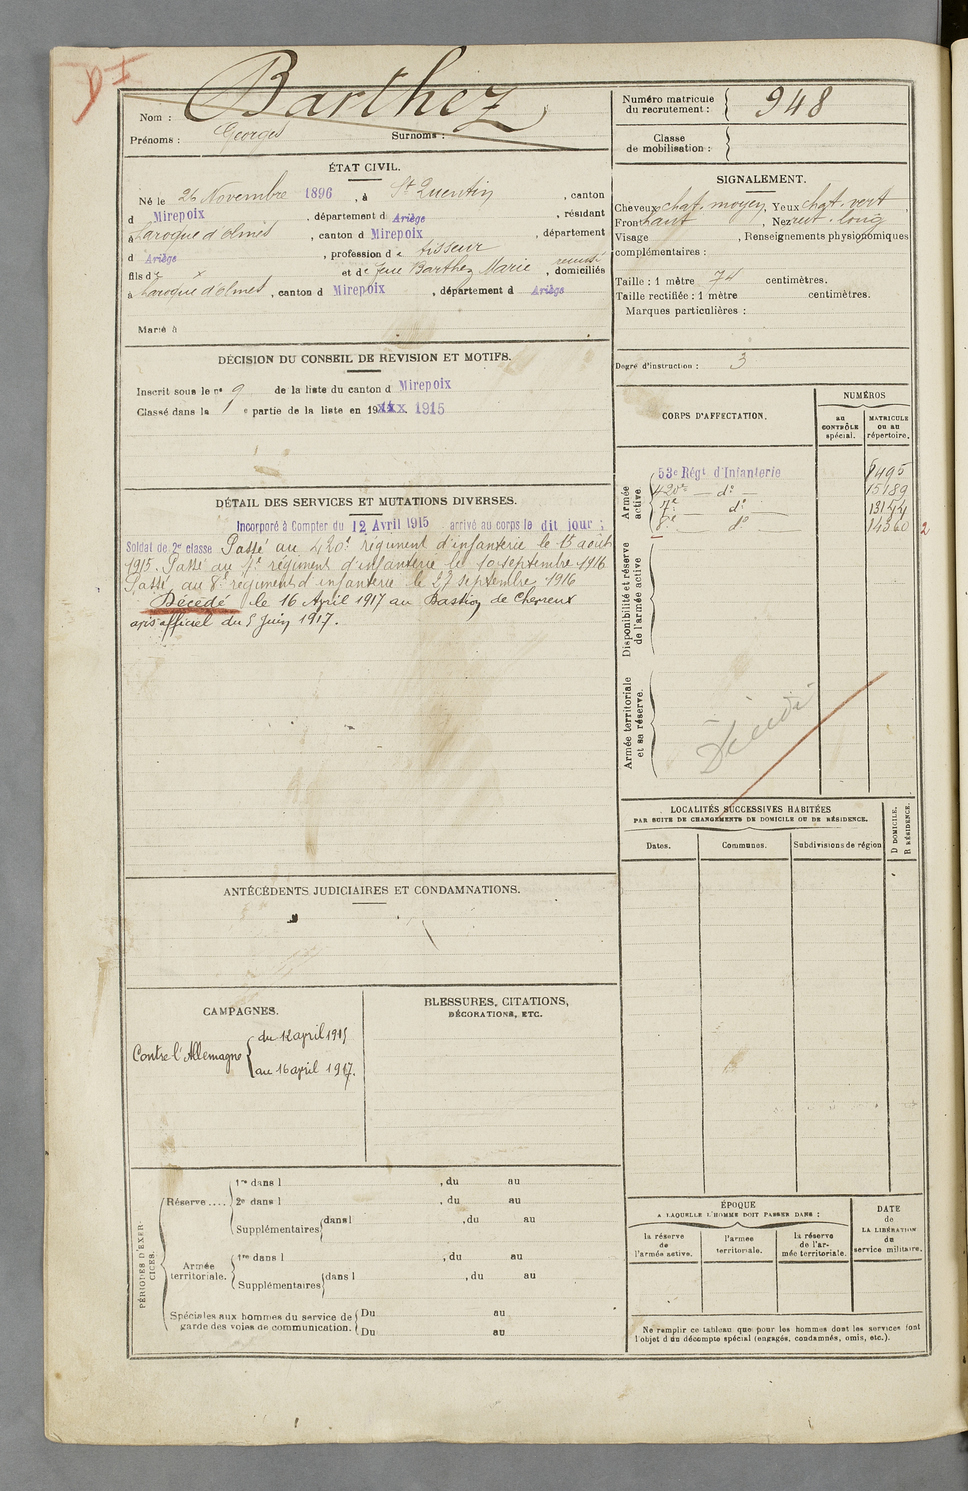 Nom : Barthez
Prénoms : Georges Surnoms :
Numéro matricule du recrutement : 948
Classe de mobilisation :
ÉTAT CIVIL.
Né le 26 Novembre 1896, à St Quentin, canton
d Mirepoix, département d Ariège, résidant
à Laroque d'olmes, canton d Mirepoix, département
d Ariège, profession de tisseur
fils de x et de feue Barthez Marie, domiciliés
à Laroque d'olmes, canton d Mirepoix, département d Ariège
Marié à
SIGNALEMENT.
Cheveux chat. moyen, Yeux chat. vert,
Front haut, Nez rect. long
Visage , Renseignements physionomiques
complémentaires :
Taille : 1 mètre 74 centimètres.
Taille rectifiée : 1 mètre centimètres.
Marques particulières :
Degré d'instruction : 3
DÉCISION DU CONSEIL DE REVISION ET MOTIFS.
Inscrit sous le n° 9 de la liste du canton d Mirepoix
Classé dans la 1 e partie de la liste en 19xxx 1915
DÉTAIL DES SERVICES ET MUTATIONS DIVERSES.
Incorporé à Compter du 12 Avril 1915 arrivé au corps le dit jour ;
Soldat de 2e classe Passé au 420e régiment d'infanterie le 15 août
1915. Passé au 7e régiment d'infanterie le 10 septembre 1916
Passé au 8e régiment d'infanterie le 27 septembre 1916
Décédé le 16 April 1917 au Bastion de Chevreux
avis officiel du 5 Juin 1917.
CORPS D'AFFECTATION.
NUMÉROS
au CONTRÔLE spécial.
MATRICULE ou au répertoire.
Armée active
53e Régt d'Infanterie
420e — do — 15189
7e — do — 13144
8e — do — 14360
2
Disponibilité et réserve de l'armée active
Armée territoriale et sa réserve.
Décédé
LOCALITÉS SUCCESSIVES HABITÉES
PAR SUITE DE CHANGEMENTS DE DOMICILE OU DE RÉSIDENCE.
Dates. Communes. Subdivisions de région
D DOMICILE,
R RÉSIDENCE.
ANTÉCÉDENTS JUDICIAIRES ET CONDAMNATIONS.
CAMPAGNES.
Contre l'Allemagne
du 12 april 1915
au 16 april 1917.
BLESSURES, CITATIONS,
DÉCORATIONS, ETC.
PÉRIODES D'EXERCICES.
Réserve ....
1re dans l , du au
2e dans l , du au
Supplémentaires dans l , du au
Armée territoriale.
1re dans l , du au
Supplémentaires dans l , du au
Spéciales aux hommes du service de garde des voies de communication.
Du au
Du au
ÉPOQUE
A LAQUELLE L'HOMME DOIT PASSER DANS :
la réserve de l'armée active.
l'armée territoriale.
la réserve de l'armée territoriale.
DATE de LA LIBÉRATION du service militaire.
Ne remplir ce tableau que pour les hommes dont les services font
l'objet d'un décompte spécial (engagés, condamnés, omis, etc.).